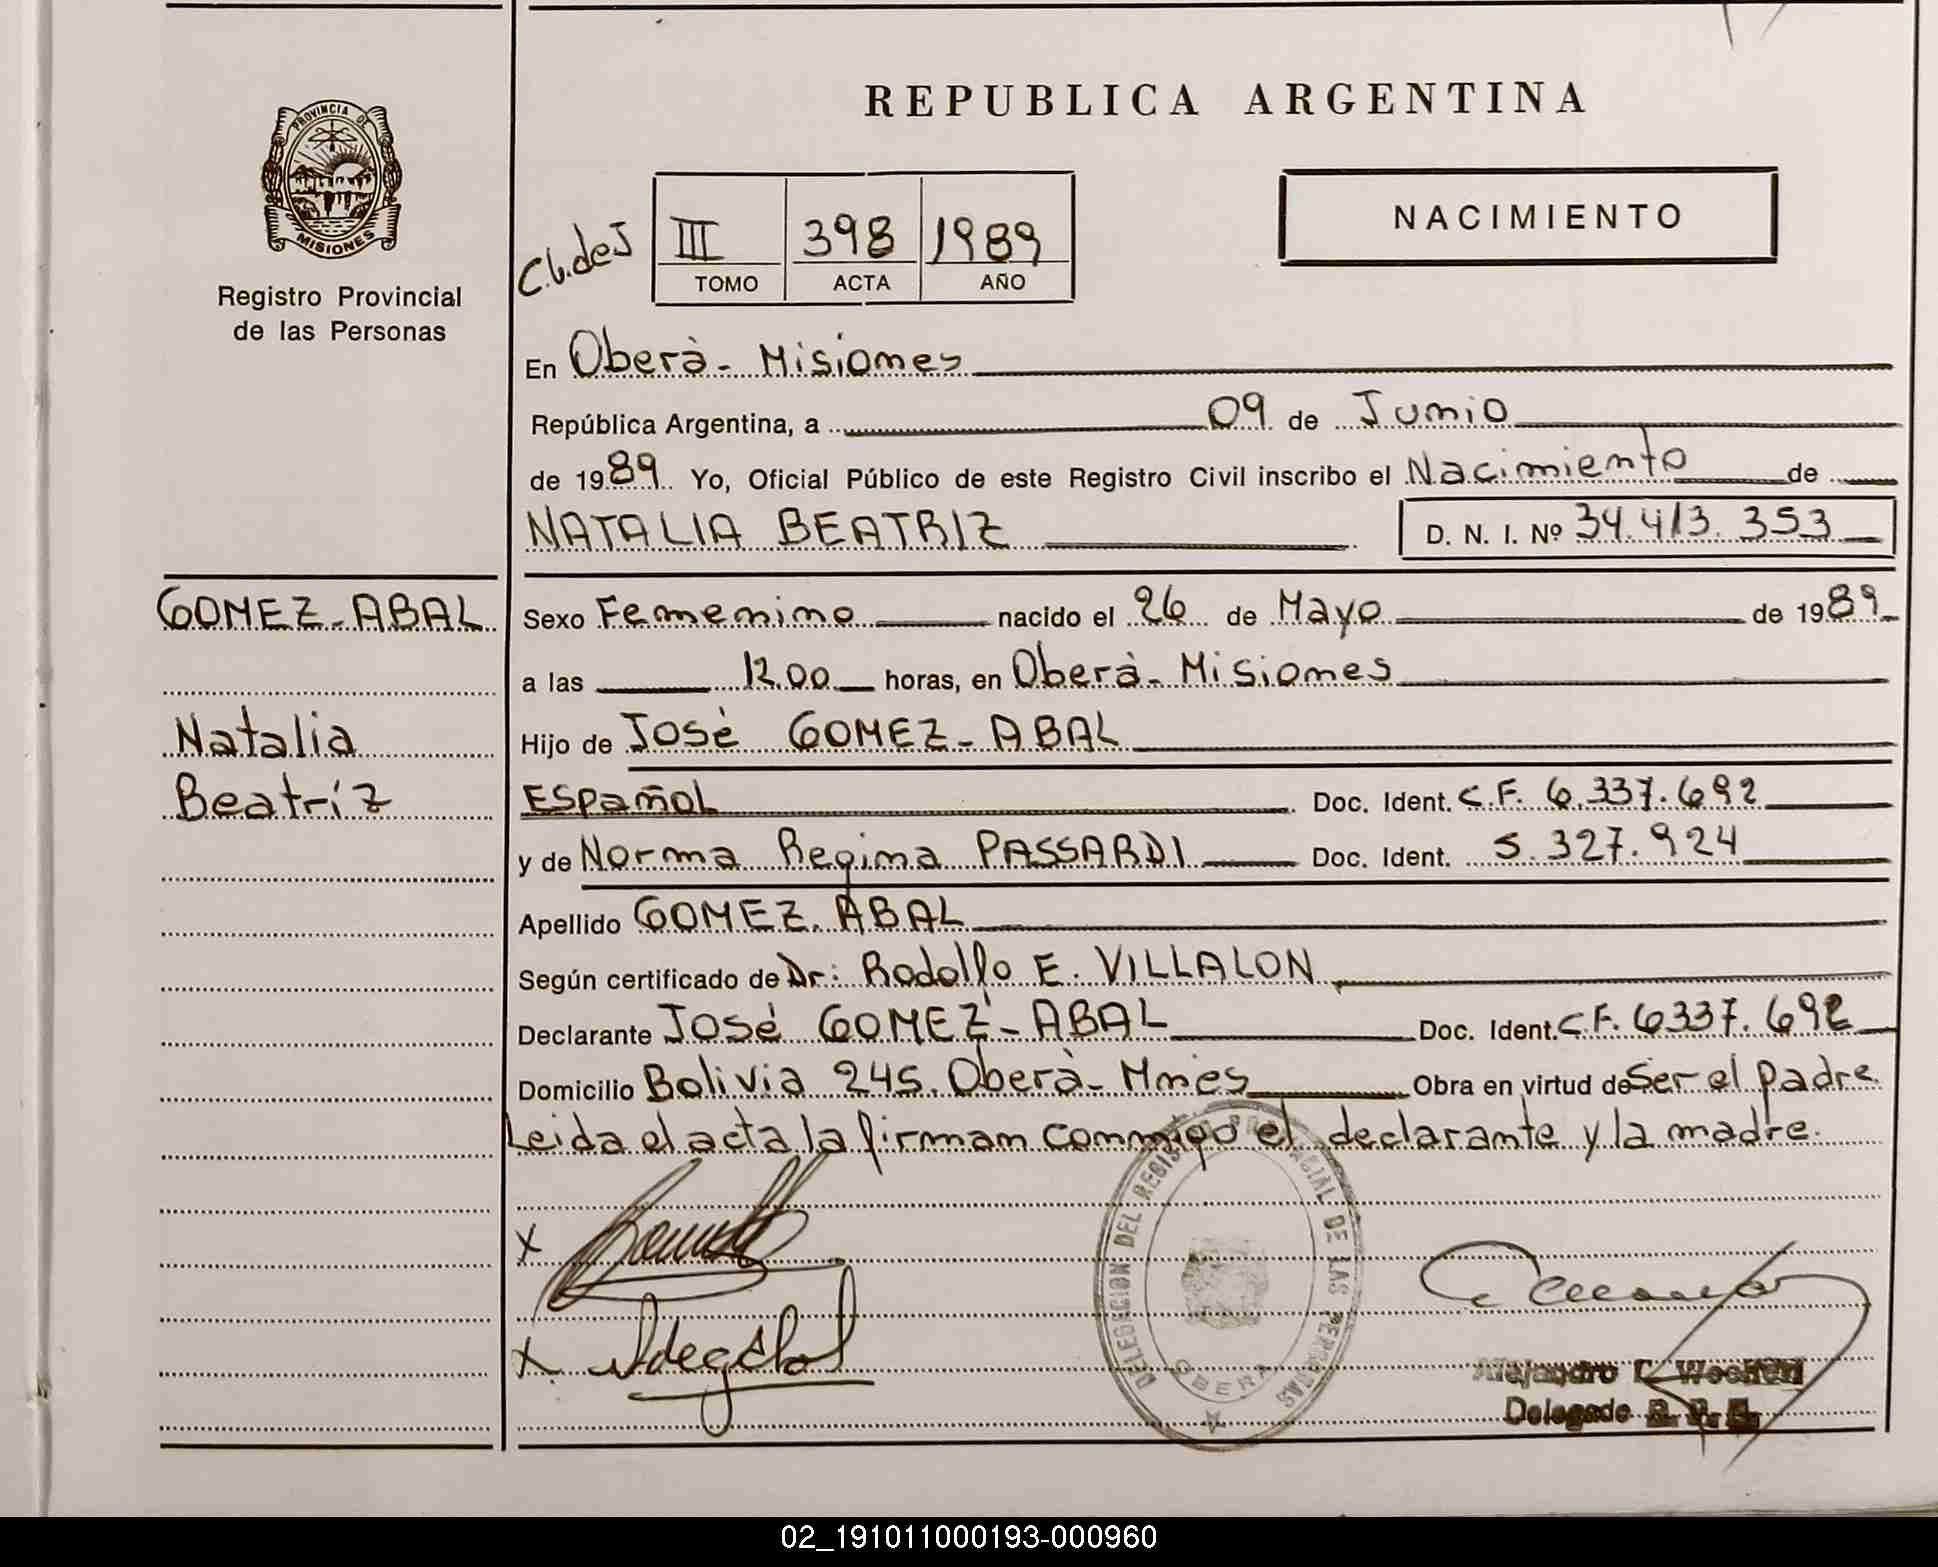 REPUBLICA ARGENTINA
PROVINCIA DE
MISIONES
Registro Provincial
de las Personas
NACIMIENTO
III 398 1989
TOMO ACTA AÑO
En Oberà - Misiones
República Argentina, a 09 de Junio
de 1989 Yo, Oficial Público de este Registro Civil inscribo el Nacimiento de
NATALIA BEATRIZ D. N. I. Nº 34.413.353
GOMEZ - ABAL
Natalia
Beatríz
Sexo Femenino nacido el 26 de Mayo de 1989
a las 12.00 horas, en Oberà - Misiones
Hijo de José GOMEZ - ABAL
Español Doc. Ident. C.F. 6.337.692
y de Norma Regina PASSARDI Doc. Ident. 5.327.924
Apellido GOMEZ - ABAL
Según certificado de Dr: Rodolfo E. VILLALON
Declarante José GOMEZ - ABAL Doc. Ident. C.F. 6337.692
Domicilio Bolivia 245. Oberà - Mnes Obra en virtud de Ser el padre
Leida el acta la firman conmigo el declarante y la madre.
X
X
DELEGACION DEL REGISTRO PROVINCIAL DE LAS PERSONAS
OBERA
Alejandro
Delegado
02_191011000193-000960